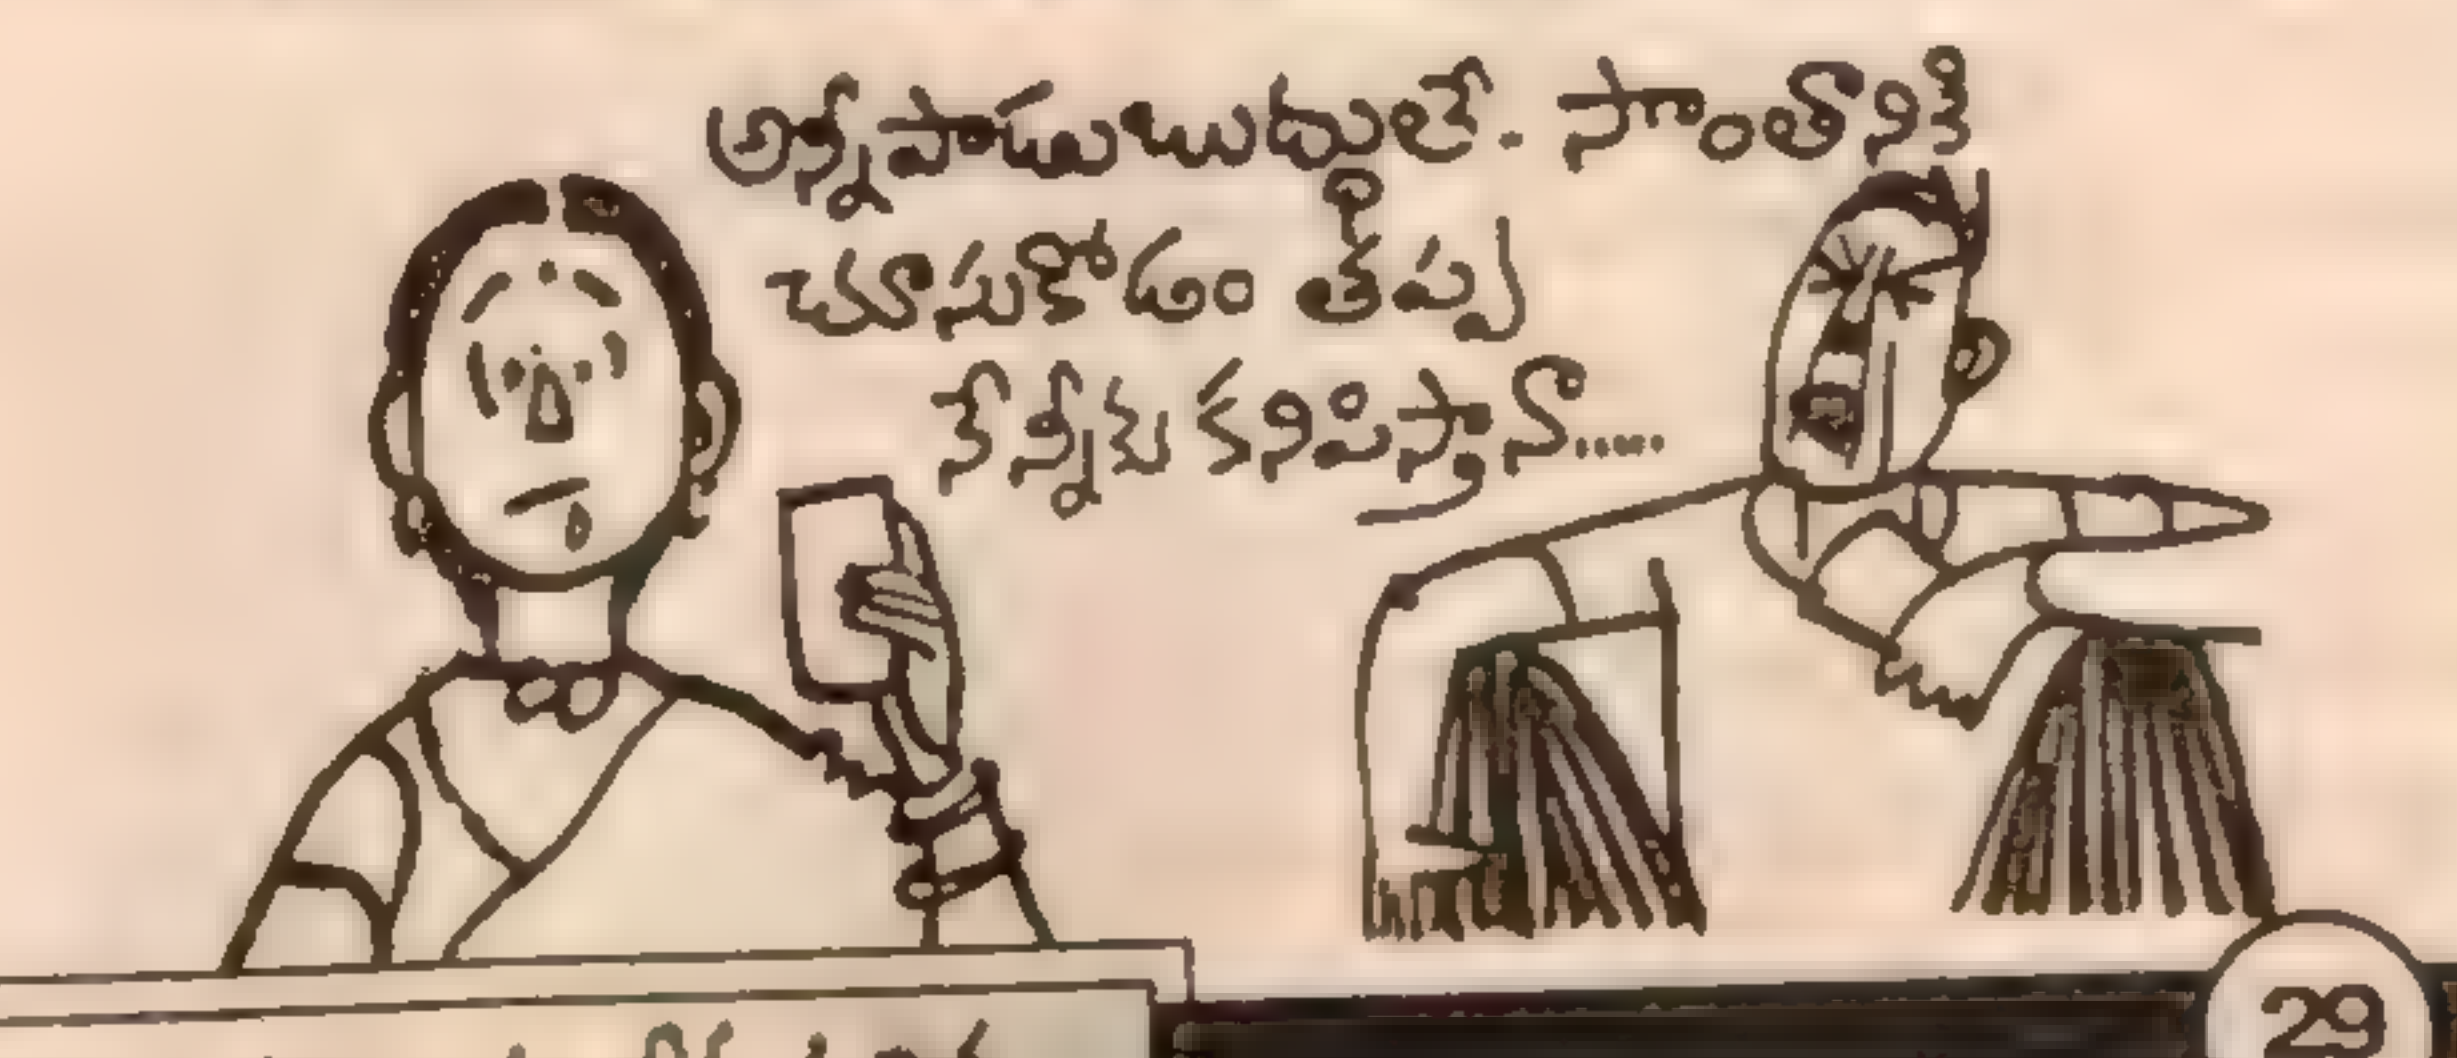 అన్నీ పాడుబుద్ధులే. సొంతానికి
చూసుకోడం తప్పు
నేన్నీకు కనిపిస్తానా.....
29